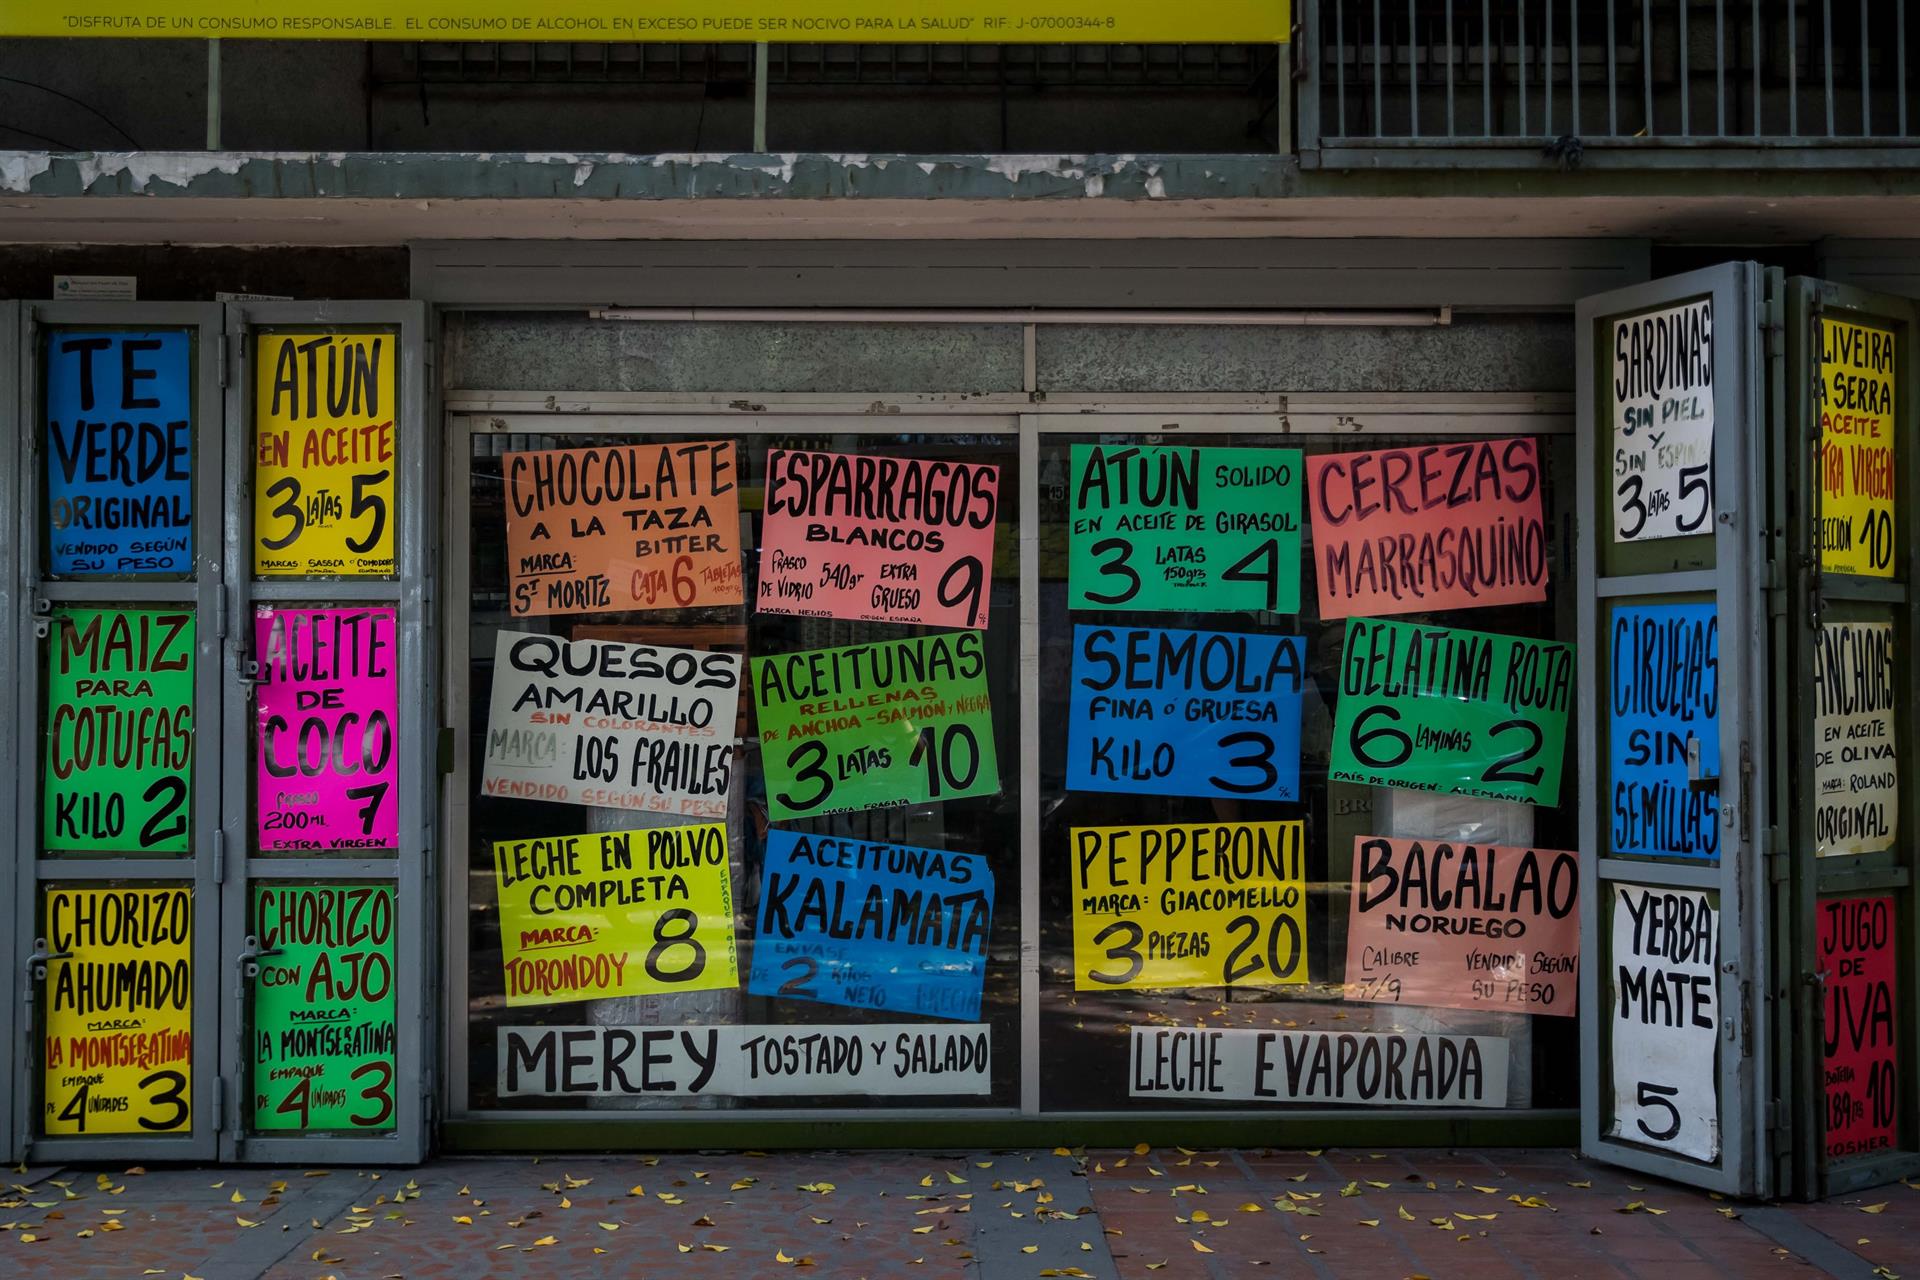 "DISFRUTA DE UN CONSUMO RESPONSABLE. EL CONSUMO DE ALCOHOL EN EXCESO PUEDE SER NOCIVO PARA LA SALUD" RIF: J-07000344-8
TÉ
VERDE
ORIGINAL
VENDIDO SEGÚN
SU PESO
ATÚN
EN ACEITE
3 LATAS 5
MARCAS: SASSCA Ó COMODORO
MAIZ
PARA
COTUFAS
KILO 2
ACEITE
DE
COCO
FRASCO
200 ML 7
EXTRA VIRGEN
CHORIZO
AHUMADO
MARCA:
LA MONTSERRATINA
EMPAQUE
DE 4 UNIDADES 3
CHORIZO
CON AJO
MARCA:
LA MONTSERRATINA
EMPAQUE
DE 4 UNIDADES 3
CHOCOLATE
A LA TAZA
BITTER
MARCA:
ST MORITZ
CAJA 6 TABLETAS
ESPARRAGOS
BLANCOS
FRASCO
DE VIDRIO
540gr
EXTRA
GRUESO
9 c/f
MARCA: HELIOS
ORIGEN: ESPAÑA
QUESOS
AMARILLO
SIN COLORANTES
MARCA: LOS FRAILES
VENDIDO SEGÚN SU PESO
ACEITUNAS
RELLENAS
DE ANCHOA - SALMÓN Y NEGRA
3 LATAS 10
MARCA: FRAGATA
LECHE EN POLVO
COMPLETA
MARCA:
TORONDOY
8
ACEITUNAS
KALAMATA
ENVASE
DE 2 KILOS
NETO
GRECIA
MEREY TOSTADO Y SALADO
ATÚN SOLIDO
EN ACEITE DE GIRASOL
3 LATAS
150grs 4
CEREZAS
MARRASQUINO
SEMOLA
FINA Ó GRUESA
KILO 3
c/k
GELATINA ROJA
6 LAMINAS 2
PAÍS DE ORIGEN: ALEMANIA
PEPPERONI
MARCA: GIACOMELLO
3 PIEZAS 20
BACALAO
NORUEGO
CALIBRE
7/9
VENDIDO SEGÚN
SU PESO
LECHE EVAPORADA
SARDINAS
SIN PIEL
Y
SIN ESPINA
3 LATAS 5
CIRUELAS
SIN
SEMILLAS
YERBA
MATE
5
LIVEIRA
A SERRA
ACEITE
TRA VIRGEN
ECCIÓN 10
ANCHOAS
EN ACEITE
DE OLIVA
MARCA: ROLAND
ORIGINAL
JUGO
DE
UVA
BOTELLA
1.89 LTS 10
KOSHER